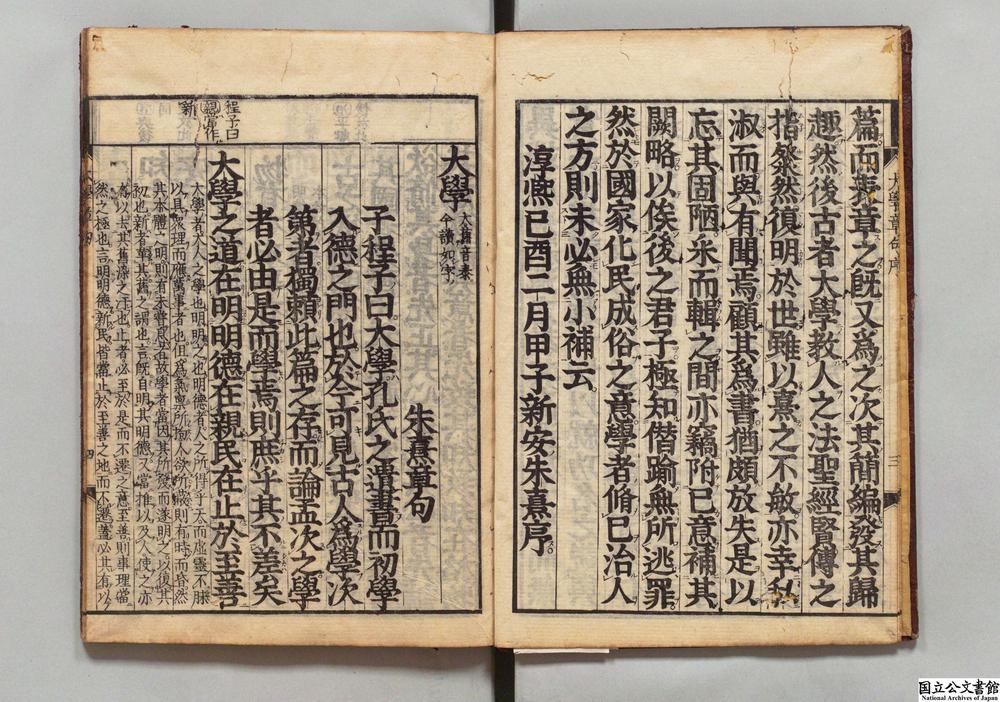 篇而表章之既又爲之次其簡編發其歸
趣然後古者大學教人之法聖經賢傳之
指粲然復明於世雖以熹之不敏亦幸私
淑而與有聞焉顧其爲書猶頗放失是以
忘其固陋采而輯之間亦竊附己意補其
闕略以俟後之君子極知僭踰無所逃罪
然於國家化民成俗之意學者脩己治人
之方則未必無小補云
淳熙己酉二月甲子新安朱熹序
大學章句序
三
大學 大舊音泰今讀如字
朱熹章句
子程子曰大學孔氏之遺書而初學
入德之門也於今可見古人爲學次
第者獨賴此篇之存而論孟次之學
者必由是而學焉則庶乎其不差矣
大學之道在明明德在親民在止於至善
程子曰
親當作
新
大學者大人之學也明明之也明德者人之所得乎天而虛靈不昧
以具衆理而應萬事者也但爲氣稟所拘人欲所蔽則有時而昏然
其本體之明則有未嘗息者故學者當因其所發而遂明之以復其
初也新者革其舊之謂也言既自明其明德又當推以及人使之亦
有以去其舊染之汙也止者必至於是而不遷之意至善則事理當
然之極也言明明德新民皆當止於至善之地而不遷蓋必其有以
四
国立公文書館
National Archives of Japan